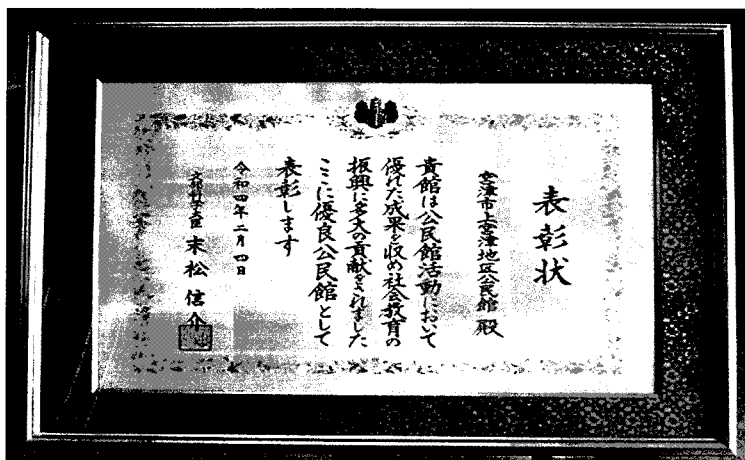 表彰状
宮津市上宮津地区公民館 殿
貴館は公民館活動において
優れた成果を収め社会教育の
振興に多大の貢献をされました
ここに優良公民館として
表彰します
令和四年二月四日
文部科学大臣 末松信介